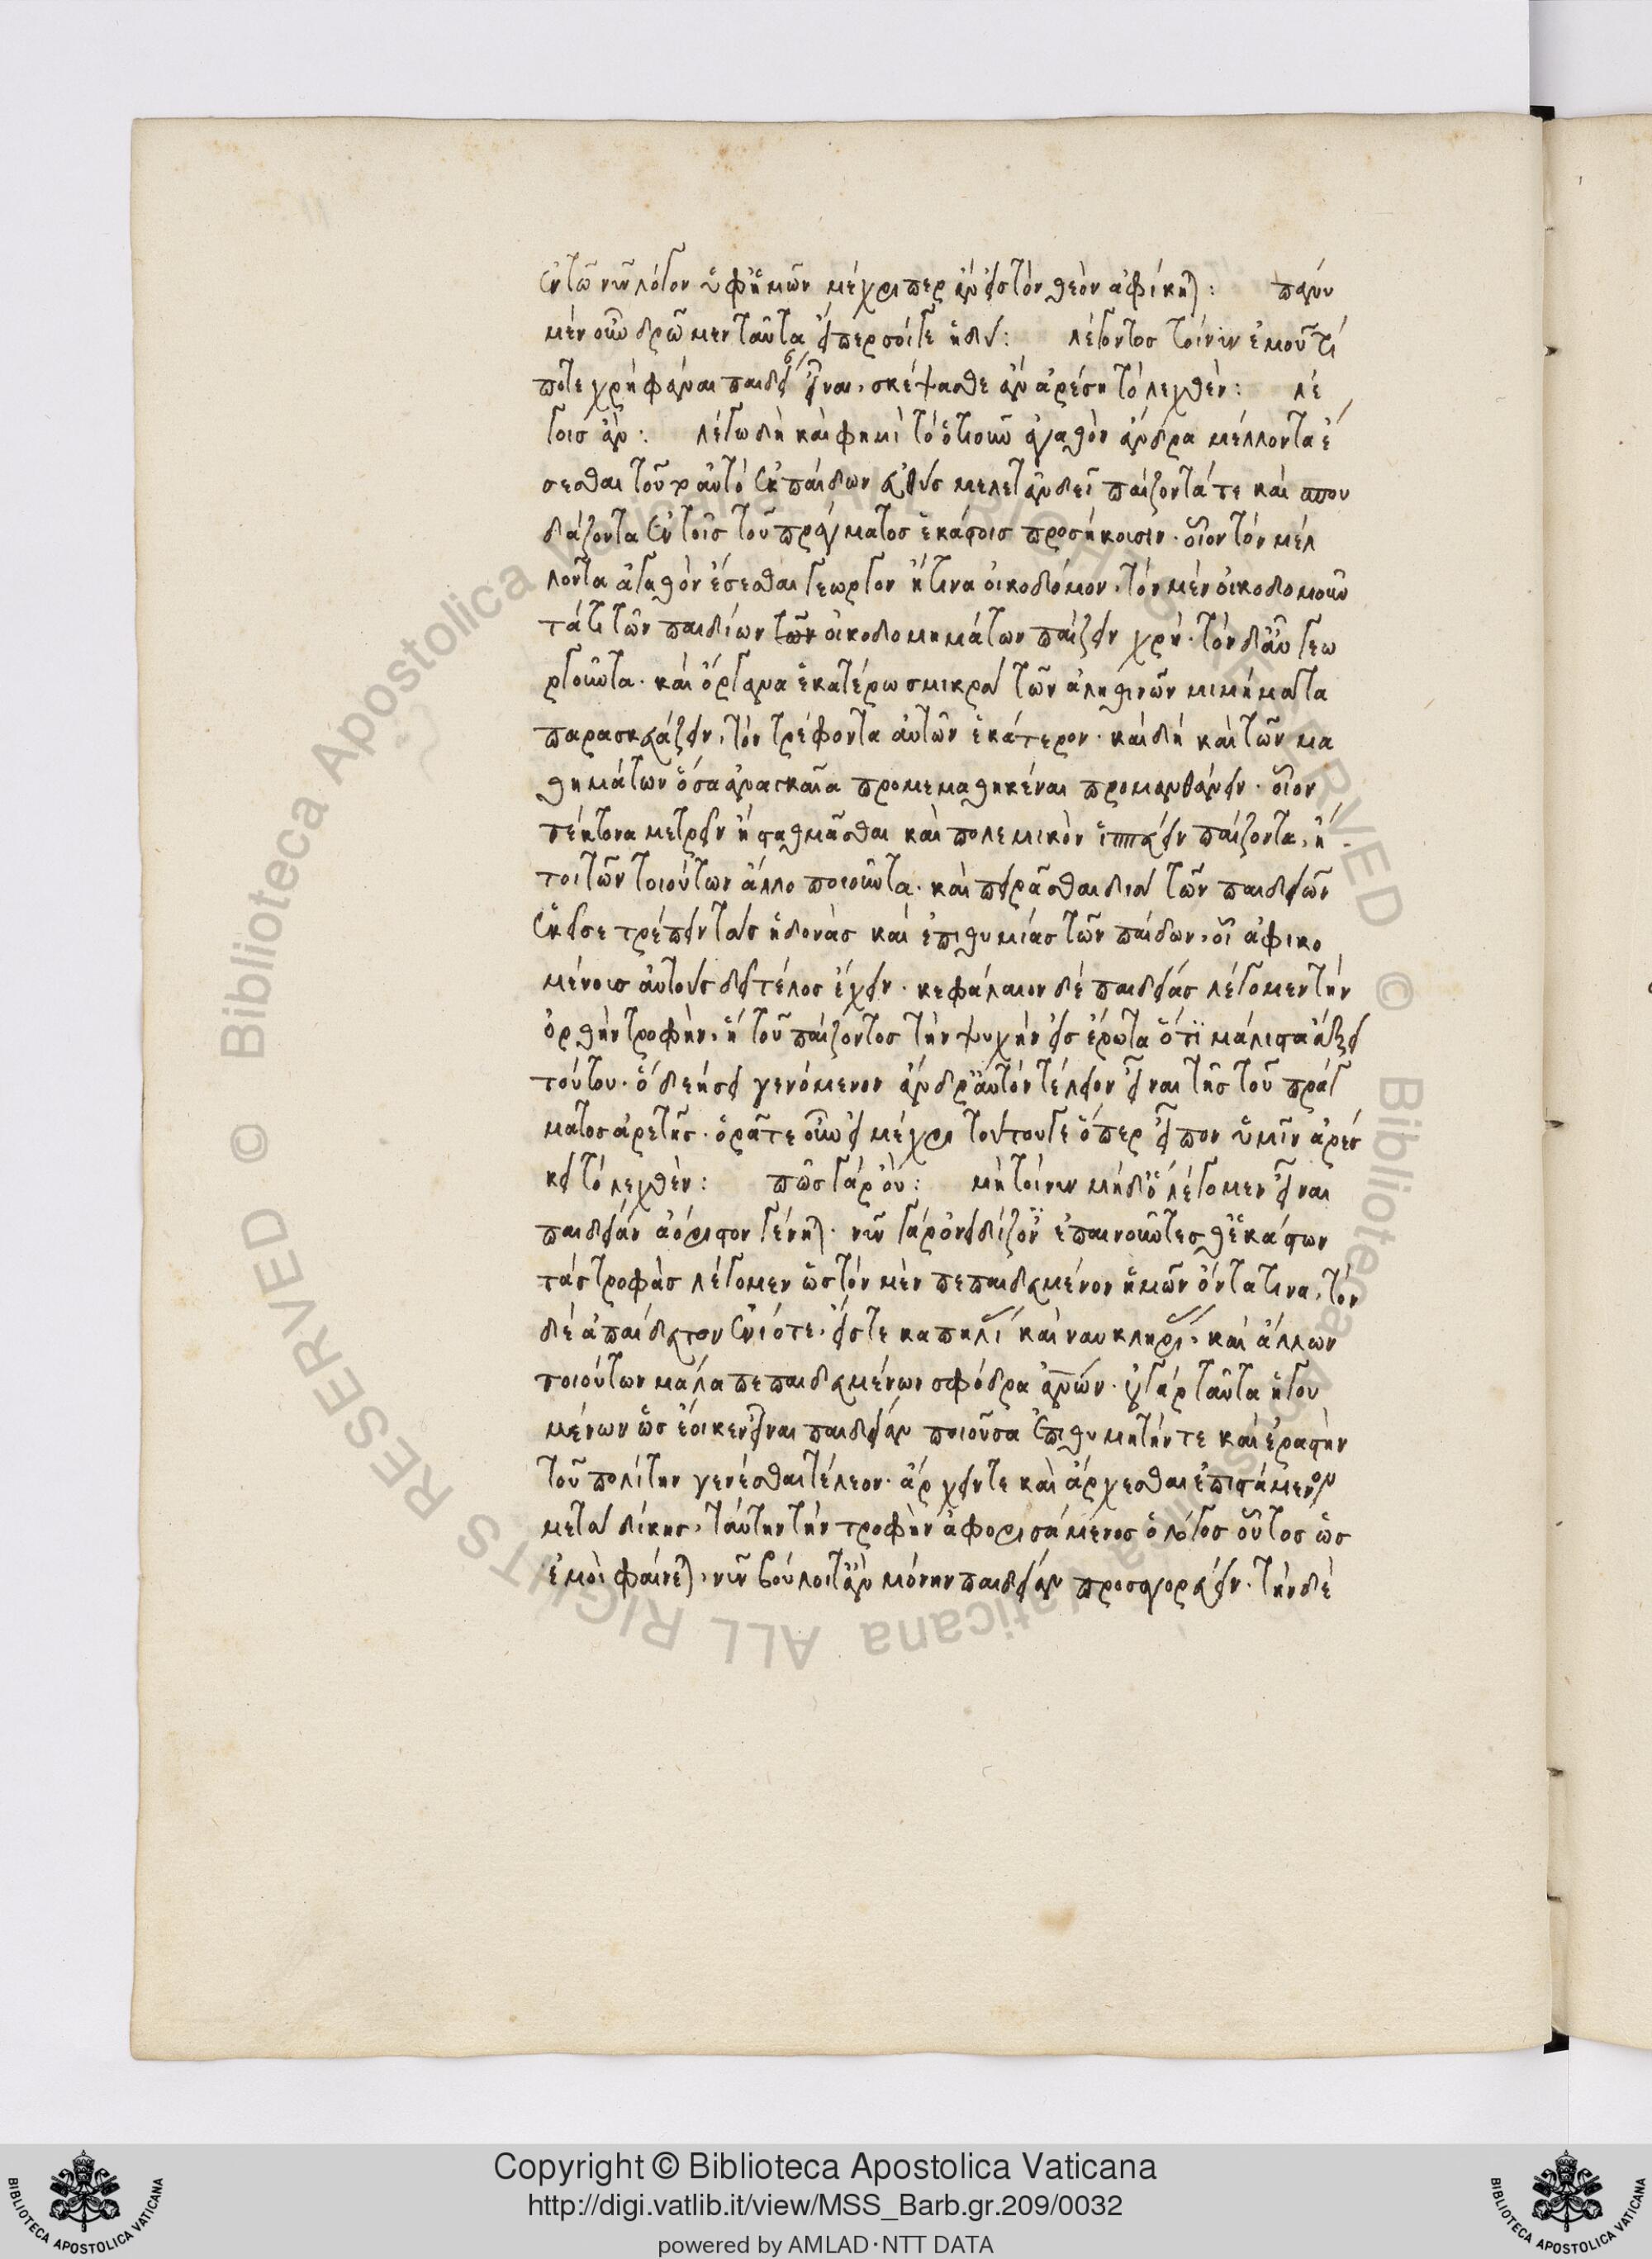 ἐν τῶ νῦν λόγον ὑφ' ἡμῶν μέχρι περ ἂν εἰς τὸν θεὸν ἀφίκηται: πάνυ
μὲν οὖν δρῶμεν ταῦτα εἴπερ σοί γε ἡδύ: λέγοντος τοίνυν ἐμοῦ τί
ποτε χρὴ φάναι παιδείαν εἶναι, σκέψασθε ἂν ἀρέσῃ τὸ λεχθέν: λέ
γοις ἄν: λέγω δὴ καὶ φημὶ τὸν ὁτιοῦν ἀγαθὸν ἄνδρα μέλλοντα ἔ
σεσθαι τοῦτ' αὐτὸ ἐκ παίδων εὐθὺς μελετᾶν δεῖ παίζοντά τε καὶ σπου
δάζοντα ἐν τοῖς τοῦ πράγματος ἑκάστοις προσήκουσιν· οἷον τὸν μέλ
λοντα ἀγαθὸν ἔσεσθαι γεωργὸν ἤ τινα οἰκοδόμον, τὸν μὲν οἰκοδομοῦν
τά τι τῶν παιδίων τῶν οἰκοδομημάτων παίζειν χρή· τὸν δ' αὖ γεω
ργοῦντα· καὶ ὄργανα ἑκατέρω σμικρὰ τῶν ἀληθινῶν μιμήματα
παρασκευάζειν, τὸν τρέφοντα αὐτῶν ἑκάτερον· καὶ δὴ καὶ τῶν μα
θημάτων ὅσα ἀναγκαῖα προμεμαθηκέναι προμανθάνειν· οἷον
τέκτονα μετρεῖν ἢ σταθμᾶσθαι καὶ πολεμικὸν ἱππεύειν παίζοντα, ἤ
τοι τῶν τοιούτων ἄλλο ποιοῦντα· καὶ πειρᾶσθαι διὰ τῶν παιδειῶν
ἐκεῖσε τρέπειν τὰς ἡδονὰς καὶ ἐπιθυμίας τῶν παίδων, οἷ ἀφικο
μένοις αὐτοὺς δεῖ τέλος ἔχειν· κεφάλαιον δὲ παιδείας λέγομεν τὴν
ὀρθὴν τροφήν, ἣ τοῦ παίζοντος τὴν ψυχὴν εἰς ἔρωτα ὅτι μάλιστα ἄξει
τούτου· ὃ δεήσει γενόμενον ἄνδρ' αὐτὸν τέλειον εἶναι τῆς τοῦ πράγ
ματος ἀρετῆς· ὁρᾶτε οὖν εἰ μέχρι τούτου γε ὅπερ εἶπον ὑμῖν ἀρέσ
κει τὸ λεχθέν: πῶς γὰρ οὔ: μὴ τοίνυν μήδ' ὃ λέγομεν εἶναι
παιδείαν ἀόριστον γένηται· νῦν γὰρ ὀνειδίζοντες ἐπαινοῦντές θ' ἑκάστων
τὰς τροφὰς λέγομεν ὡς τὸν μὲν πεπαιδευμένον ἡμῶν ὄντα τινα, τὸν
δὲ ἀπαίδευτον ἐνίοτε, εἴς τε καπηλείας καὶ ναυκληρίας, καὶ ἄλλων
τοιούτων μάλα πεπαιδευμένων σφόδρα ἀνθρώπων· οὐ γὰρ ταῦτα ἡγου
μένων ὡς ἔοικεν εἶναι παιδείαν ποιοῦσα ἐπιθυμητήν τε καὶ ἐραστὴν
τοῦ πολίτην γενέσθαι τέλεον· ἄρχειν τε καὶ ἄρχεσθαι ἐπιστάμενον
μετὰ δίκης, ταύτην τὴν τροφὴν ἀφορισάμενος ὁ λόγος οὗτος ὡς
ἐμοὶ φαίνεται, νῦν βούλοιτ' ἂν μόνην παιδείαν προσαγορεύειν· τὴν δὲ
Copyright © Biblioteca Apostolica Vaticana
http://digi.vatlib.it/view/MSS_Barb.gr.209/0032
powered by AMLAD·NTT DATA